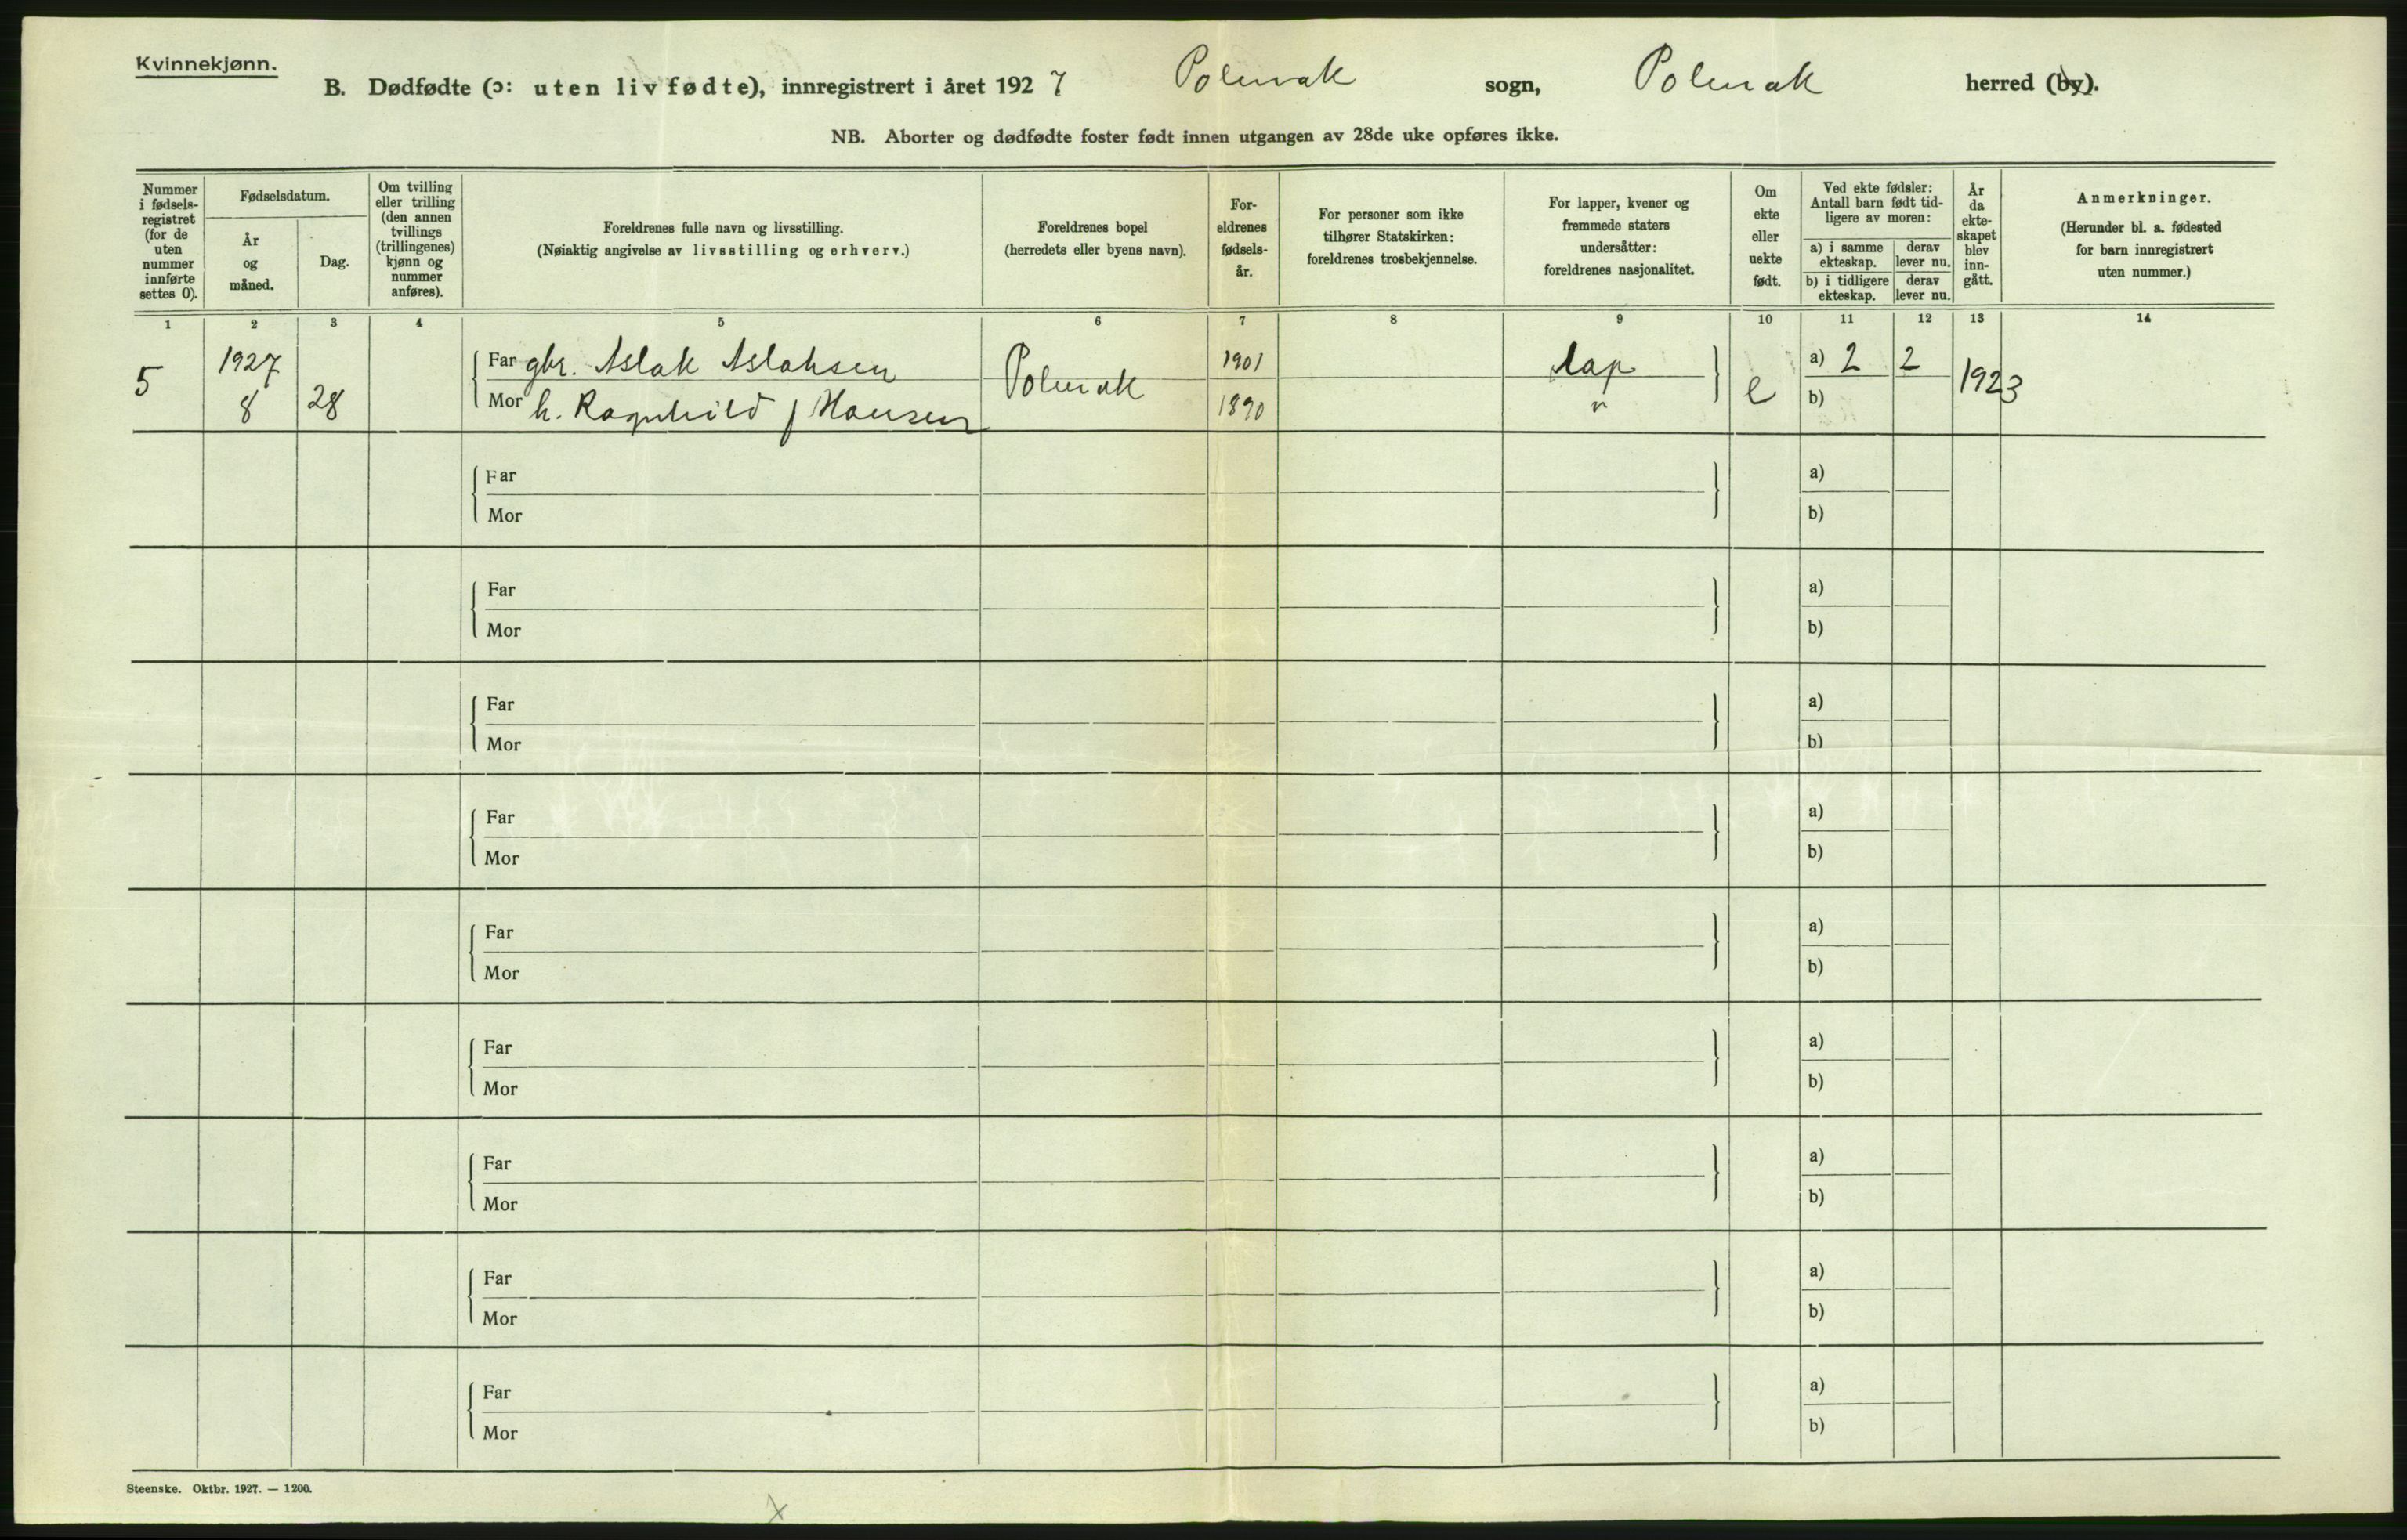 Kvinnekjønn.
B. Dødfødte (ɔ: uten liv fødte), innregistrert i året 1927 Polmak sogn, Polmak herred (by).
NB. Aborter og dødfødte foster født innen utgangen av 28de uke opføres ikke.
Nummer
i fødsels-
registret
(for de
uten
nummer
innførte
settes 0).
Fødselsdatum.
År
og
måned.
Dag.
Om tvilling
eller trilling
(den annen
tvillings
(trillingenes)
kjønn og
nummer
anføres).
Foreldrenes fulle navn og livsstilling.
(Nøiaktig angivelse av livsstilling og erhverv.)
Foreldrenes bopel
(herredets eller byens navn).
For-
eldrenes
fødsels-
år.
For personer som ikke
tilhører Statskirken:
foreldrenes trosbekjennelse.
For lapper, kvener og
fremmede staters
undersåtter:
foreldrenes nasjonalitet.
Om
ekte
eller
uekte
født.
Ved ekte fødsler:
Antall barn født tid-
ligere av moren:
a) i samme
ekteskap.
derav
lever nu.
b) i tidligere
ekteskap.
derav
lever nu.
År
da
ekte-
skapet
blev
inn-
gått.
Anmerkninger.
(Herunder bl. a. fødested
for barn innregistrert
uten nummer.)
1 2 3 4 5 6 7 8 9 10 11 12 13 14
5 1927 8 28
Far gbr. Aslak Aslaksen Polmak 1901 lap e a) 2 2 1923
Mor h. Ragnhild f Hansen 1890 " b)
Far a)
Mor b)
Far a)
Mor b)
Far a)
Mor b)
Far a)
Mor b)
Far a)
Mor b)
Far a)
Mor b)
Far a)
Mor b)
Far a)
Mor b)
Far a)
Mor b)
Steenske. Oktbr. 1927. — 1200.
x